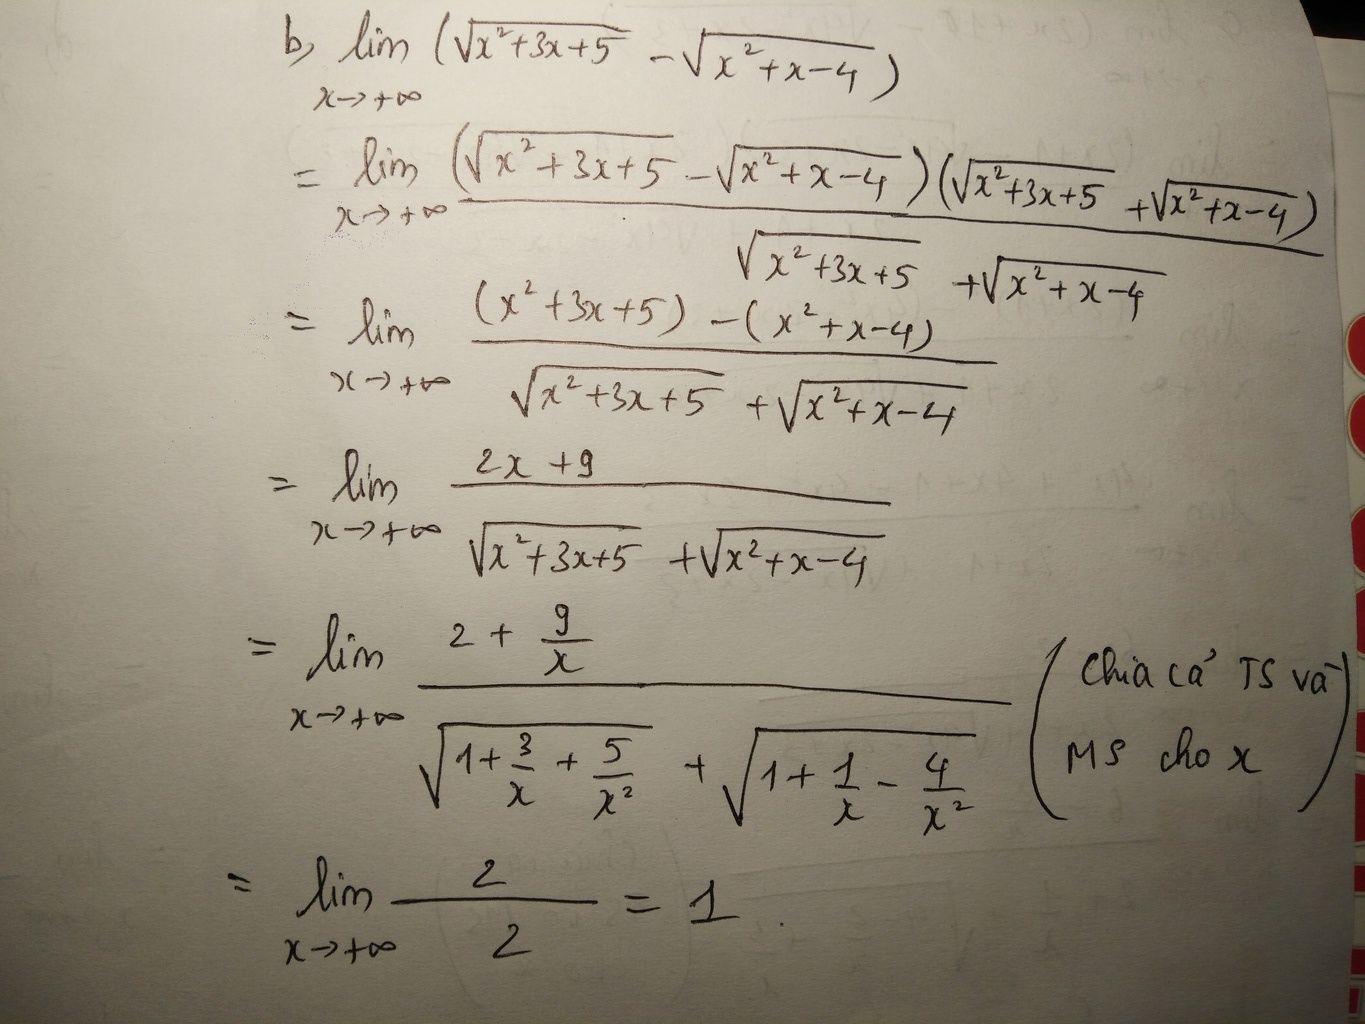 b, lim (√(x²+3x+5) - √(x²+x-4))
x→+∞
= lim (√(x²+3x+5) - √(x²+x-4))(√(x²+3x+5) + √(x²+x-4))
x→+∞
√(x²+3x+5) + √(x²+x-4)
= lim (x²+3x+5) - (x²+x-4)
x→+∞
√(x²+3x+5) + √(x²+x-4)
= lim 2x+9
x→+∞
√(x²+3x+5) + √(x²+x-4)
= lim 2 + 9/x
x→+∞
√(1+3/x+5/x²) + √(1+1/x-4/x²)
(Chia cả TS và
MS cho x)
= lim 2/2 = 1.
x→+∞